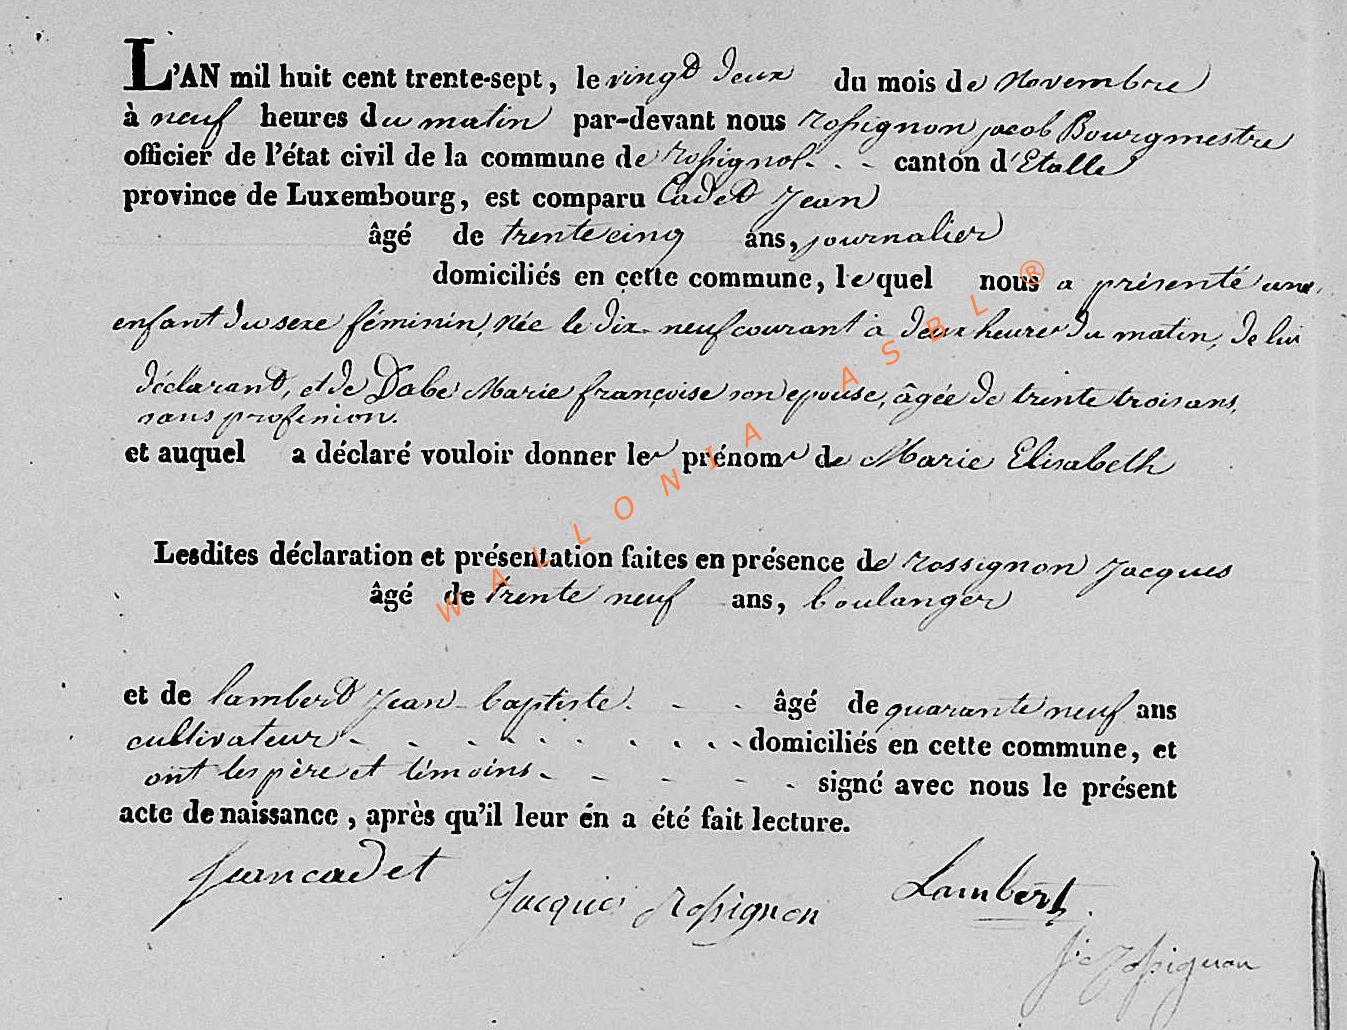 L'AN mil huit cent trente-sept, le vingt deux du mois de Novembre
à neuf heures du matin par-devant nous rossignon jacob Bourgmestre
officier de l'état civil de la commune de rossignol - - - canton d'Etalle
province de Luxembourg, est comparu Cadet Jean
âgé de trente cinq ans, journalier
domiciliés en cette commune, lequel nous a présenté une
enfant du sexe féminin, née le dix-neuf courant à deux heures du matin, de lui
déclarant, et de Dabe Marie françoise son epouse, âgée de trente trois ans,
sans profession.
et auquel a déclaré vouloir donner les prénoms de Marie Elisabeth
Lesdites déclaration et présentation faites en présence de rossignon Jacques
âgé de trente neuf ans, boulanger
et de lambert Jean-baptiste. - - âgé de quarante neuf ans
cultivateur - - - - - - - - - domiciliés en cette commune, et
ont les père et témoins - - - - - signé avec nous le présent
acte de naissance, après qu'il leur én a été fait lecture.
Jean cadet
Jacques Rossignon
Lambert
j. Rossignon
WALLONIA ASBL ®